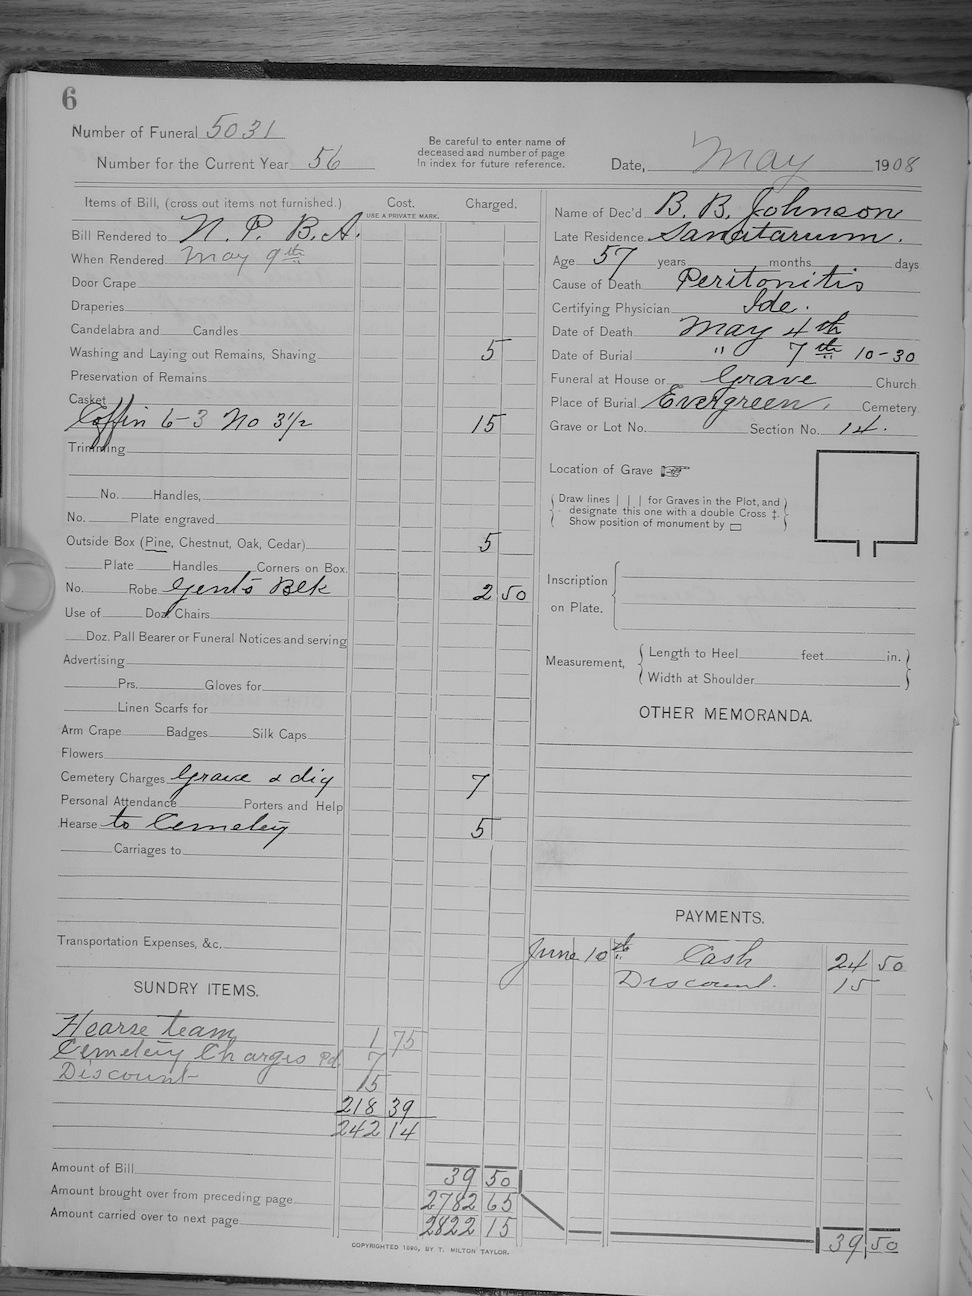 6
Number of Funeral 5031
Number for the Current Year 56
Be careful to enter name of
deceased and number of page
in index for future reference.
Date, May 1908
Items of Bill, (cross out items not furnished.)
Cost.
USE A PRIVATE MARK.
Charged.
Bill Rendered to N. P. B. A.
When Rendered May 9th
Door Crape
Draperies
Candelabra and Candles
Washing and Laying out Remains, Shaving 5
Preservation of Remains
Casket
Coffin 6-3 No 3 1/2 15
Trimming
No. Handles,
No. Plate engraved
Outside Box (Pine, Chestnut, Oak, Cedar) 5
Plate Handles Corners on Box.
No. Robe Gents Blk 2 50
Use of Doz. Chairs
Doz. Pall Bearer or Funeral Notices and serving
Advertising
Prs. Gloves for
Linen Scarfs for
Arm Crape Badges Silk Caps
Flowers
Cemetery Charges Grave & dig 7
Personal Attendance Porters and Help
Hearse to Cemetery 5
Carriages to
Transportation Expenses, &c.
SUNDRY ITEMS.
Hearse team 1 75
Cemetery Charges Pd. 7
Discount 15
218 39
242 14
Amount of Bill 39 50
Amount brought over from preceding page 2782 65
Amount carried over to next page 2822 15
COPYRIGHTED 1890, BY T. MILTON TAYLOR.
Name of Dec'd B. B. Johnson
Late Residence Sanatarium.
Age 57 years months days
Cause of Death Peritonitis
Certifying Physician Ide.
Date of Death May 4th
Date of Burial " 7th 10-30
Funeral at House or Grave Church
Place of Burial Evergreen, Cemetery
Grave or Lot No. Section No. 14.
Location of Grave
Draw lines | | | for Graves in the Plot, and
designate this one with a double Cross ‡.
Show position of monument by ▭
Inscription
on Plate.
Measurement,
Length to Heel feet in.
Width at Shoulder
OTHER MEMORANDA.
PAYMENTS.
June 10th Cash 24 50
Discount. 15
39 50